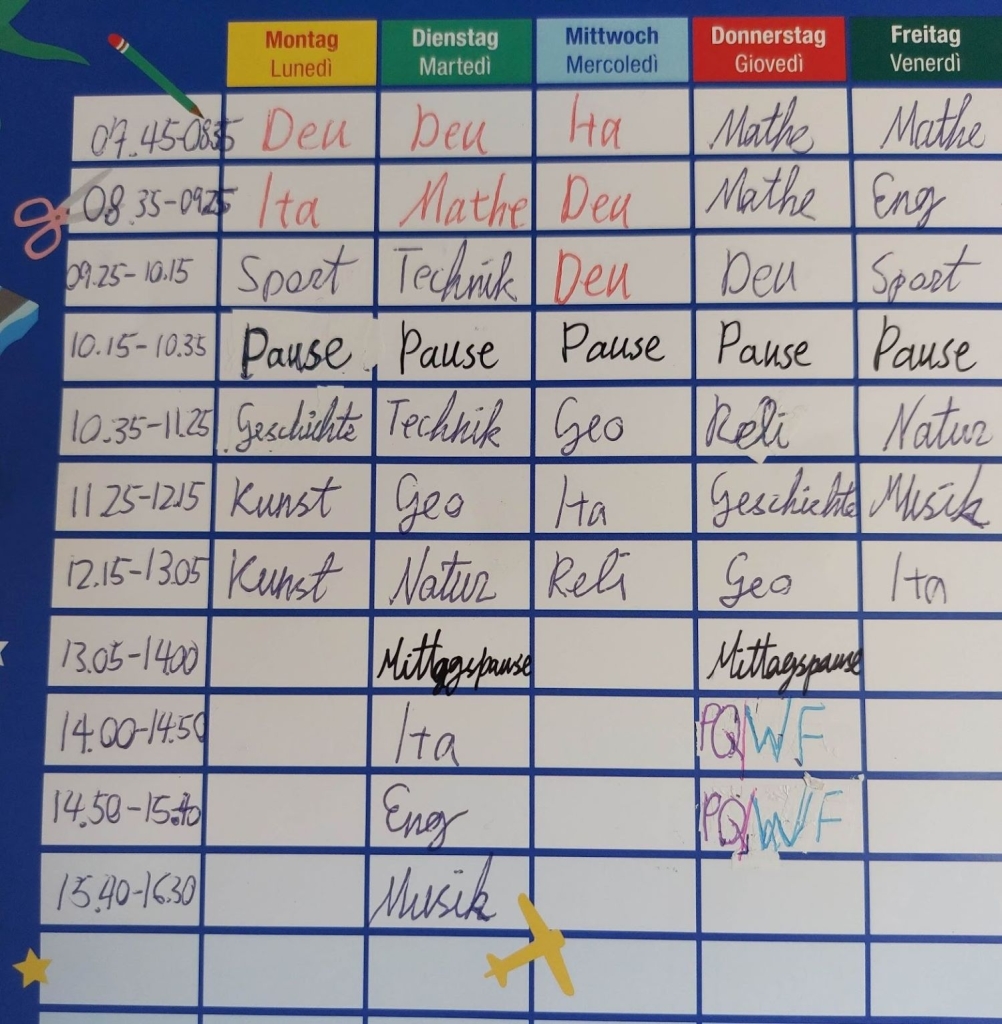 Montag Dienstag Mittwoch Donnerstag Freitag
Lunedì Martedì Mercoledì Giovedì Venerdì
07.45-0835 Deu Deu Ita Mathe Mathe
08.35-0925 Ita Mathe Deu Mathe Eng
09.25-10.15 Sport Technik Deu Deu Sport
10.15-10.35 Pause Pause Pause Pause Pause
10.35-11.25 Geschichte Technik Geo Reli Natur
11 25-12.15 Kunst Geo Ita Geschichte Musik
12.15-13.05 Kunst Natur Reli Geo Ita
13.05-1400 Mittagspause Mittagspause
14.00-14.50 Ita PQ/WF
14.50-15.40 Eng PQ/WF
15.40-16.30 Musik